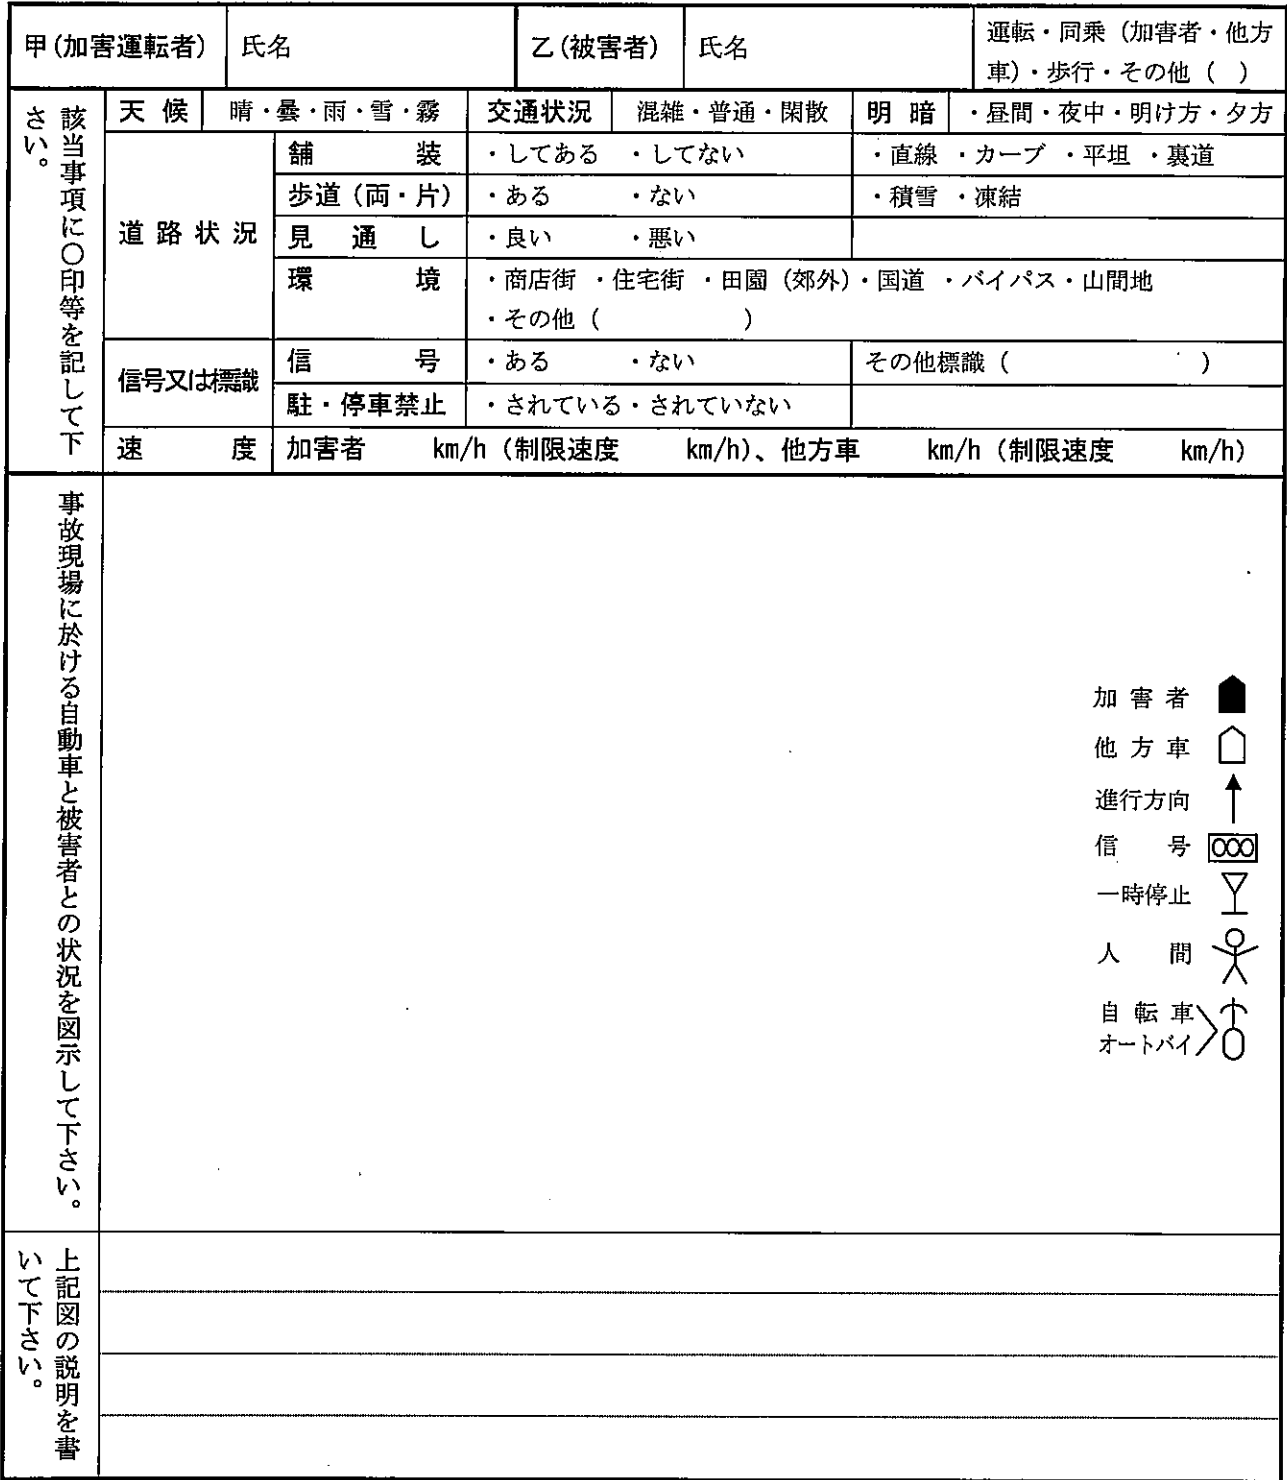 甲(加害運転者) 氏名 乙(被害者) 氏名 運転・同乗（加害者・他方車)・歩行・その他（ ）
該当事項に○印等を記して下さい。
天候 晴・曇・雨・雪・霧 交通状況 混雑・普通・閑散 明暗 ・昼間・夜中・明け方・夕方
道路状況
舗装 ・してある ・してない ・直線 ・カーブ ・平坦 ・裏道
歩道（両・片） ・ある ・ない ・積雪 ・凍結
見通し ・良い ・悪い
環境 ・商店街 ・住宅街 ・田園（郊外）・国道 ・バイパス・山間地
・その他（ ）
信号又は標識
信号 ・ある ・ない その他標識（ ）
駐・停車禁止 ・されている・されていない
速度 加害者 km/h（制限速度 km/h）、他方車 km/h（制限速度 km/h）
事故現場に於ける自動車と被害者との状況を図示して下さい。
加害者
他方車
進行方向
信号
一時停止
人間
自転車
オートバイ
上記図の説明を書いて下さい。